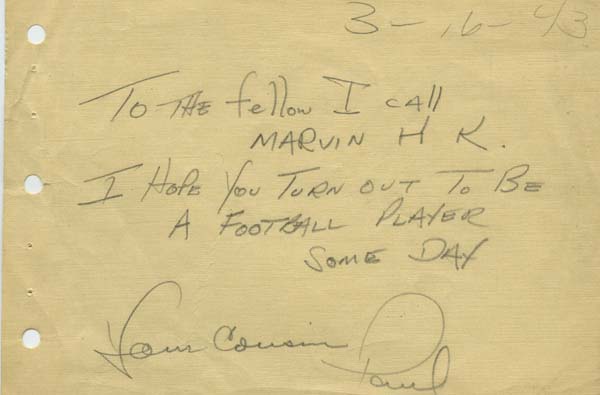 3-16-43
To THE fellow I cAll
MARVIN H K.
I HOPE YOU TURN OUT TO BE
A FOOTBALL PLAYER
SOME DAY
Your Cousin Paul